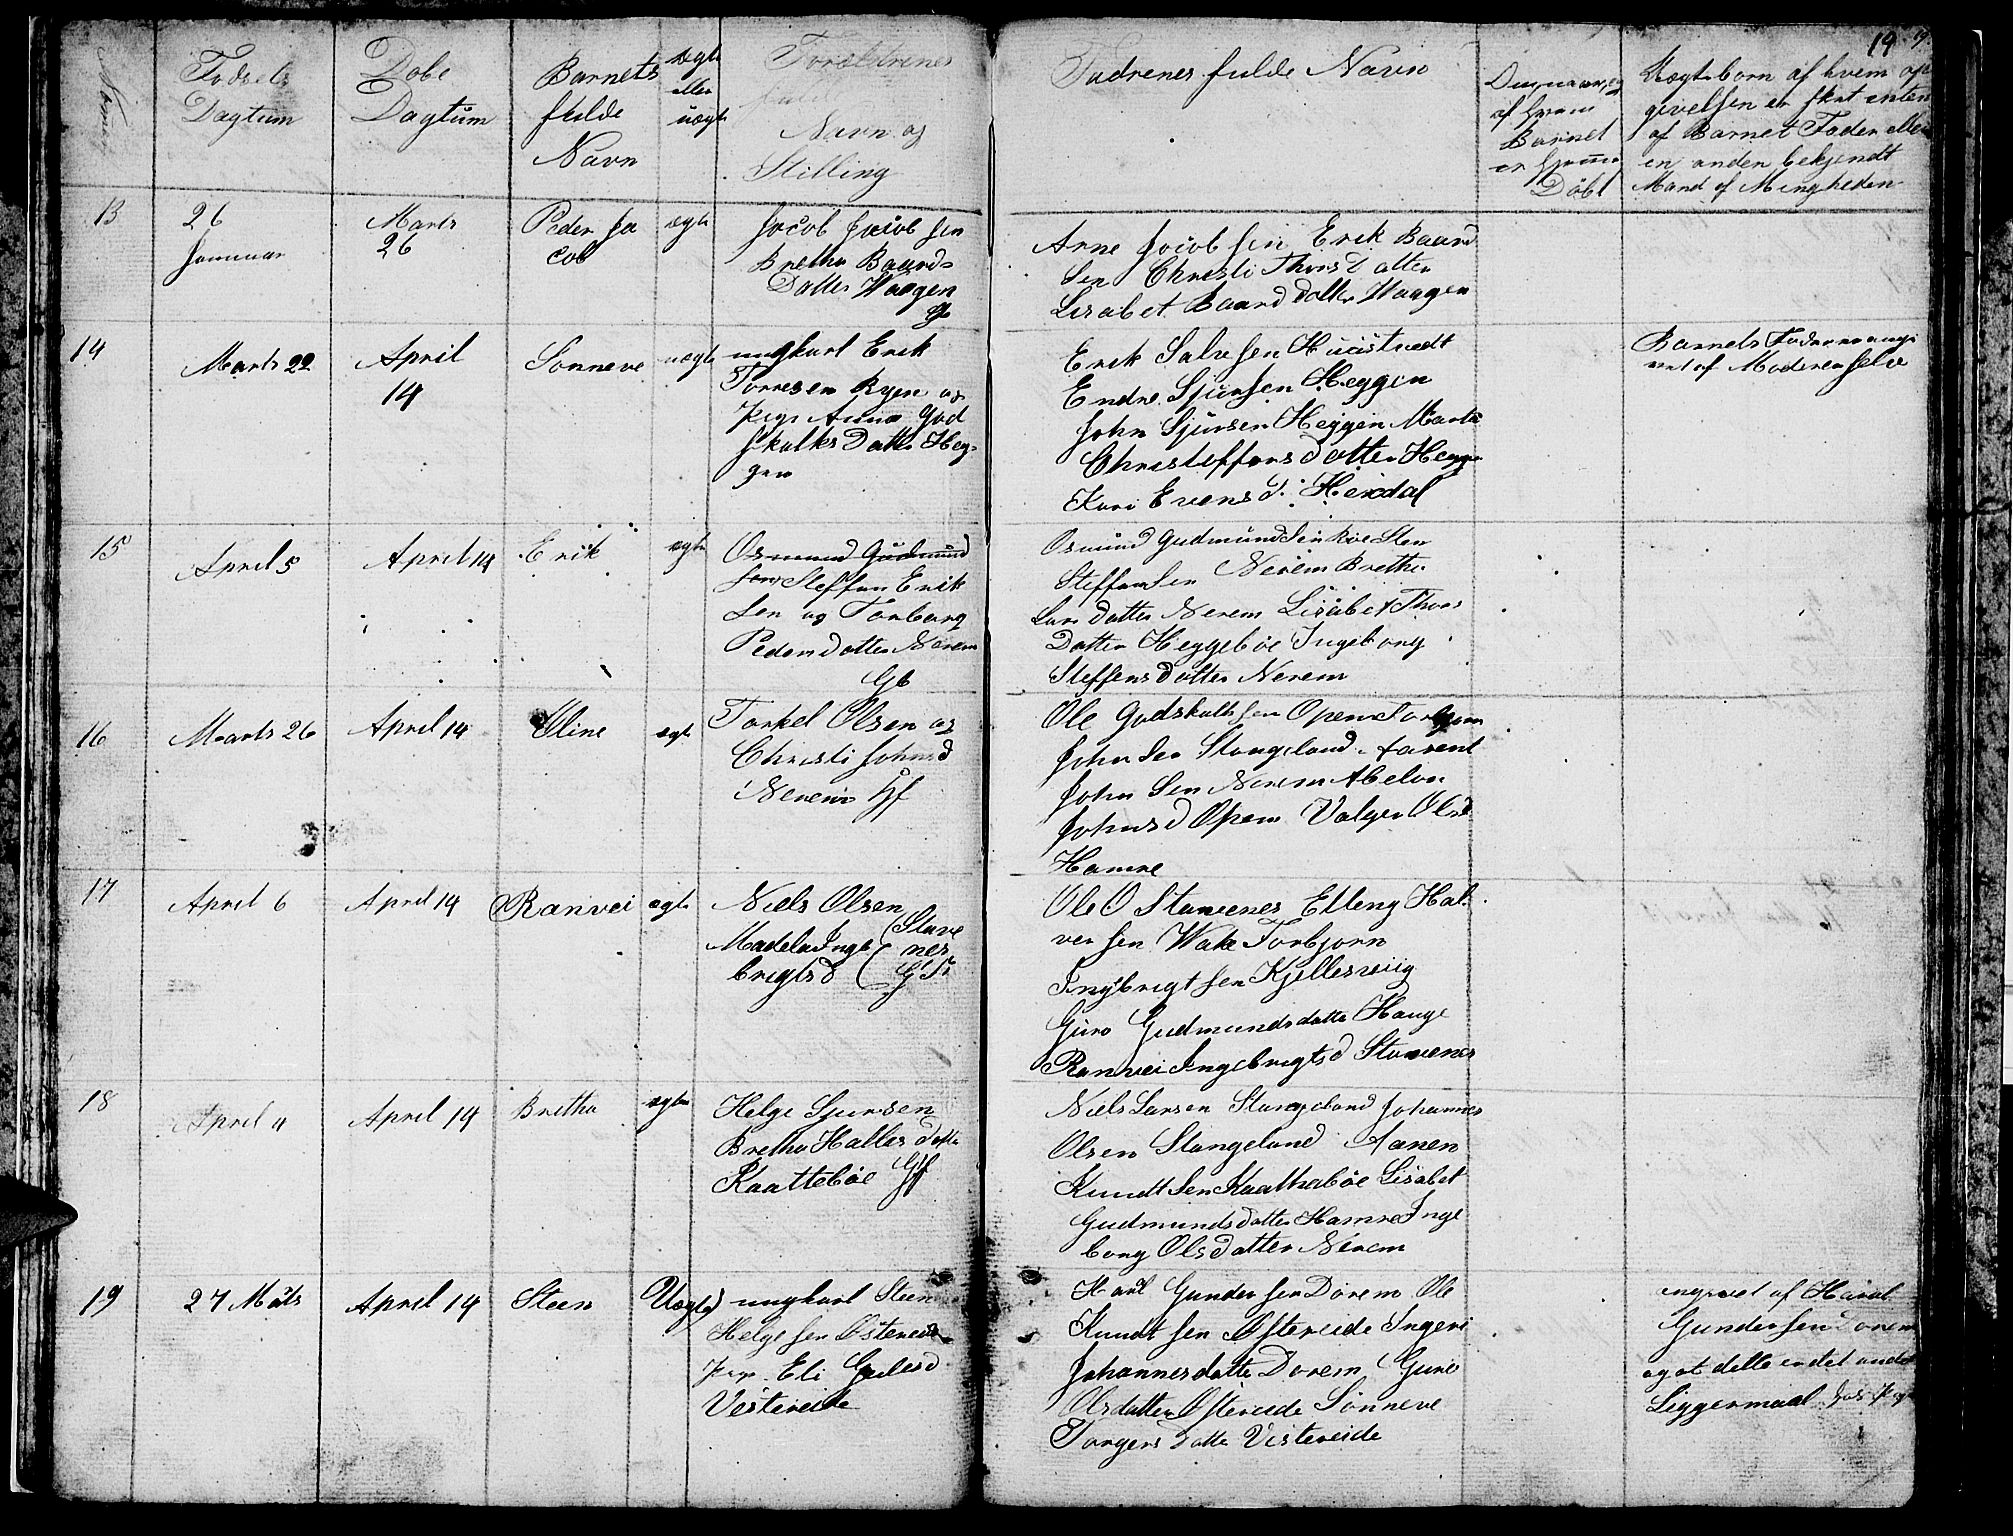 19 19
Fodsels
Dagtum
Dobe
Dagtum
Barnets
fulde
Navn
ægte
eller
uægte
Forældrenes
Navn og
Stilling
Fadrenes fulde Navn
af hvem
Barnet
er hjemme
Döbt
Uægteborn af hvem op
givelsen er sket enten
af Barnet Fader eller
en anden bekjendt
Mand af Menigheden
13
26
Januar
Marts
26
Peder Ja
cob
ægte
Jacob Jacob sen
Bretha Baards
Datter Haagen
Gb
Arne Jacob sen Erik Baard
Sen Christi Thorsdatter
Lisabet Baard datter Haagen
14
Marts 22
April
14
Sonneve
uægte
ungkarl Erik
Torresen Ryen og
Pige Anna God
skalks Datter Heg-
gen
Erik Salvesen
Endre Sjursen Heggen
John Sjursen Heggen Marta
Christoffersdatter Hegge
Kari Evensd. Heirdal
Barnets Fader er angi
vet af Moderen selv
15
April 5
April 14
Erik
ægte
Osmund Gudmund
sen Steffen Erik
Sen og Torborg
Pedersdatter Nerem
Gb
Osmund Gudmundsen Sten
Steffensen Nerem Bretha
Lars datter Nerem Lisabet Thors
Datter Heggeboe Ingeborg
Steffens datter Nerem
16
Marts 26
April 14
Oline
ægte
Torkel Olsen og
Christi Johnsd
Nerem Hf
Ole Godskalksen Opem Torbjørn
John Sen Stangeland Aarent
John Sen Nerem Abelon
Johnsd Opem Valger Olsd
Hamre
17
April 6
April 14
Ranvei
ægte
Niels Olsen
Madela Inge
brigtsd
(Stave
nes
Ole O Stavenes Elleng Hal-
versen Wake Torbjorn
Ingebrigtsen Kjellesviig
Guro Gudmundsdatter Hauge
Ranvei Ingebrigtsd Stavenes
18
April 4
April 14
Bretha
ægte
Helge Sjursen
Bretha Halles datter
Kaatteböe Hf
Niels Larsen Stangeland Johannes
Olsen Stangeland Aanen
Knudt Sen Kaattaböe Lisabet
Gudmunds datter Hamre Inge
borg Olsdatter Nerem
19
27 Mats
April 14
Steen
Uægte
ungkarl Steen
Helgesen Østereide
Pige Eli
Vestereide
Harl Gundersen Dorem Ole
Knudtsen Østereide Ingeri
Johannesdatter Dorem Guro
Olsdatter Østereide Sönneve
Torgersdatter Vestereide
angivet af Haral
Gundersen Dorem
og at dette er det andet
Liggermaal